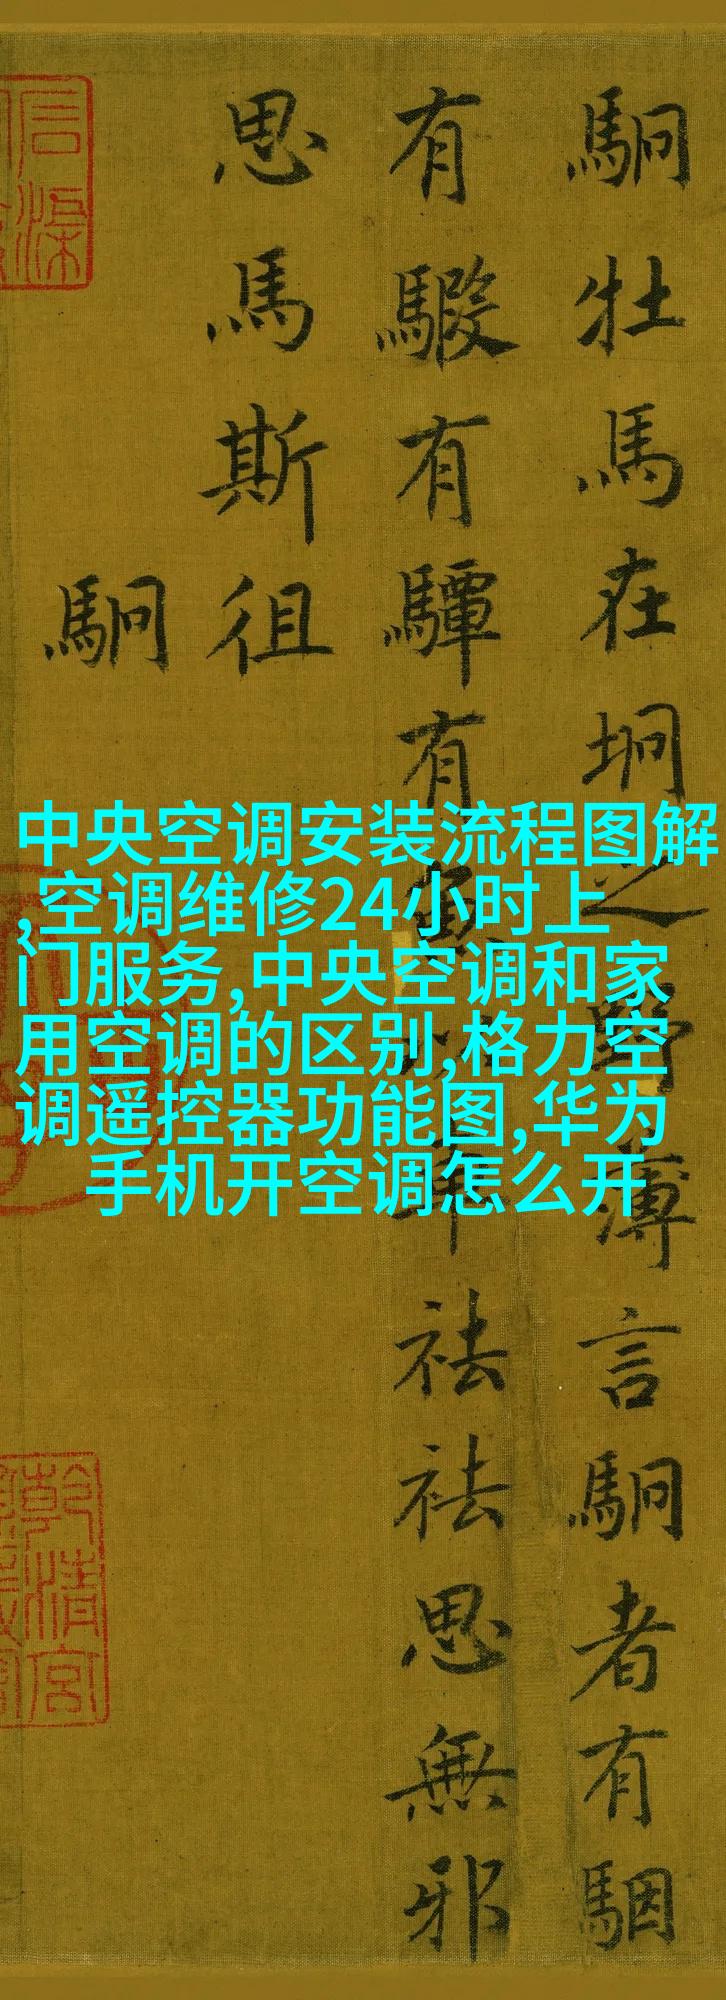 駉牡馬在坰之野薄言駉者有駰
有騢有驔有魚以車祛祛思無邪
思馬斯徂
駉
中央空调安装流程图解
,空调维修24小时上
门服务,中央空调和家
用空调的区别,格力空
调遥控器功能图,华为
手机开空调怎么开
乾清宮